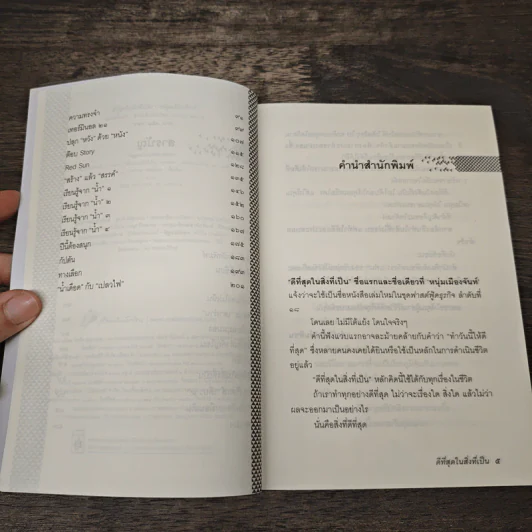 ความทรงจำ ๙๑
เทอร์มินอล ๒๑ ๙๗
ปลุก "หวัง" ด้วย "หนัง"
ตือบ Story ๑๑๕
Red Sun ๑๒๑
"สร้าง" แล้ว "สรรค์"
เรียนรู้จาก "น้ำ" ๑
เรียนรู้จาก "น้ำ" ๒ ๑๕๒
เรียนรู้จาก "น้ำ" ๓
เรียนรู้จาก "น้ำ" ๔
ปีนี้ต้องสนุก ๑๗๕
กัปตัน
ทางเลือก ๑๙๓
"น้ำเดือด" กับ "เปลวไฟ" ๒๐๑
คำนำสำนักพิมพ์
"ดีที่สุดในสิ่งที่เป็น" ชื่อแรกและชื่อเดียวที่ 'หนุ่มเมืองจันท์'
แจ้งว่าจะใช้เป็นชื่อหนังสือเล่มใหม่ในชุดฟาสต์ฟู้ดธุรกิจ ลำดับที่
๑๘
โดนเลย ไม่มีโต้แย้ง โดนใจจริงๆ
คำนี้ฟังแวบแรกอาจละม้ายคล้ายกับคำว่า "ทำวันนี้ให้ดี
ที่สุด" ซึ่งหลายคนคงเคยได้ยินหรือใช้เป็นหลักในการดำเนินชีวิต
อยู่แล้ว
"ดีที่สุดในสิ่งที่เป็น" หลักคิดนี้ใช้ได้กับทุกเรื่องในชีวิต
ถ้าเราทำทุกอย่างดีที่สุด ไม่ว่าจะเรื่องใด สิ่งใด แล้วไม่ว่า
ผลจะออกมาเป็นอย่างไร
นั่นคือสิ่งที่ดีที่สุด
ดีที่สุดในสิ่งที่เป็น ๕